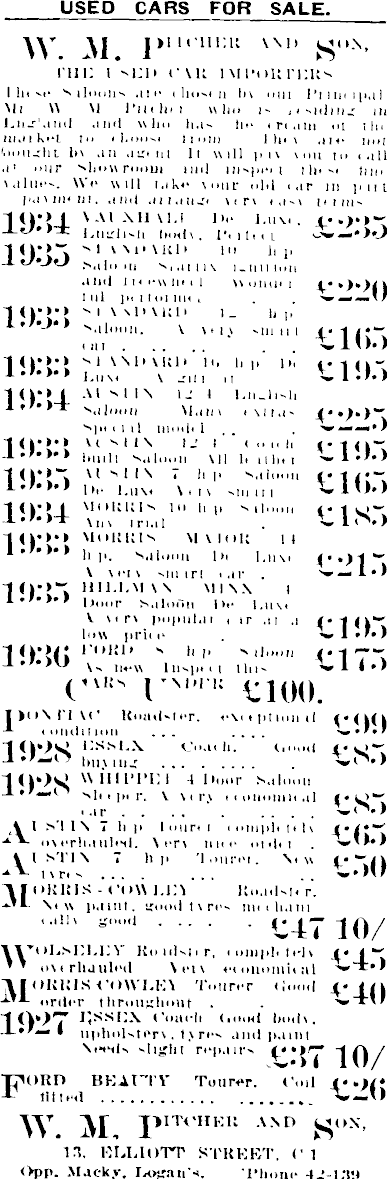 USED CARS FOR SALE.
W. M. PITCHER AND SON,
THE USED CAR IMPORTERS
These Saloons are chosen by our Principal
Mr W M Pitcher who is residing in
England and who has the cream of the
market to choose from They are not
bought by an agent It will pay you to call
at our Showroom and inspect these fine
values. We will take your old car in part
payment, and arrange very easy terms
1934 VAUXHALL De Luxe,
English body, Perfect £235
1935 STANDARD 10 h p
Saloon Startix ignition
and freewheel Wonder
ful performer . . £220
1933 STANDARD 12 h p
Saloon, A very smart
car .. .. .. . . £165
1933 STANDARD 16 h p De
Luxe A gift at £195
1934 AUSTIN 12 4 English
Saloon Many extras
Special model .. . £225
1933 AUSTIN 12 4 Coach
built Saloon All leather £195
1935 AUSTIN 7 h p Saloon
De Luxe Very smart £165
1934 MORRIS 10 h p Saloon
Any trial . £185
1933 MORRIS MAJOR 14
h p. Saloon De Luxe
A very smart car . £215
1935 HILLMAN MINX 4
Door Saloon De Luxe
A very popular car at a
low price . £195
1936 FORD 8 h p Saloon
As new Inspect this £175
CARS UNDER £100.
PONTIAC Roadster, exceptional
condition ... .... £99
1928 ESSEX Coach, Good
buying .... ......... . £85
1928 WHIPPET 4 Door Saloon
Sleeper, A very economical
car . . .. . .. .. £85
AUSTIN 7 h p Tourer completely
overhauled, Very nice order . £65
AUSTIN 7 h p Tourer, New
tyres ... ... .. £50
MORRIS-COWLEY Roadster,
New paint, good tyres mechani
cally good . .. . . £47 10/
WOLSELEY Roadster, completely
overhauled Very economical £45
MORRIS COWLEY Tourer Good
order throughout . . £40
1927 ESSEX Coach Good body,
upholstery, tyres and paint
Needs slight repairs £37 10/
FORD BEAUTY Tourer, Coil
fitted ............ ......... £26
W. M. PITCHER AND SON,
13, ELLIOTT STREET, C 1
Opp. Macky, Logan's, 'Phone 42-139